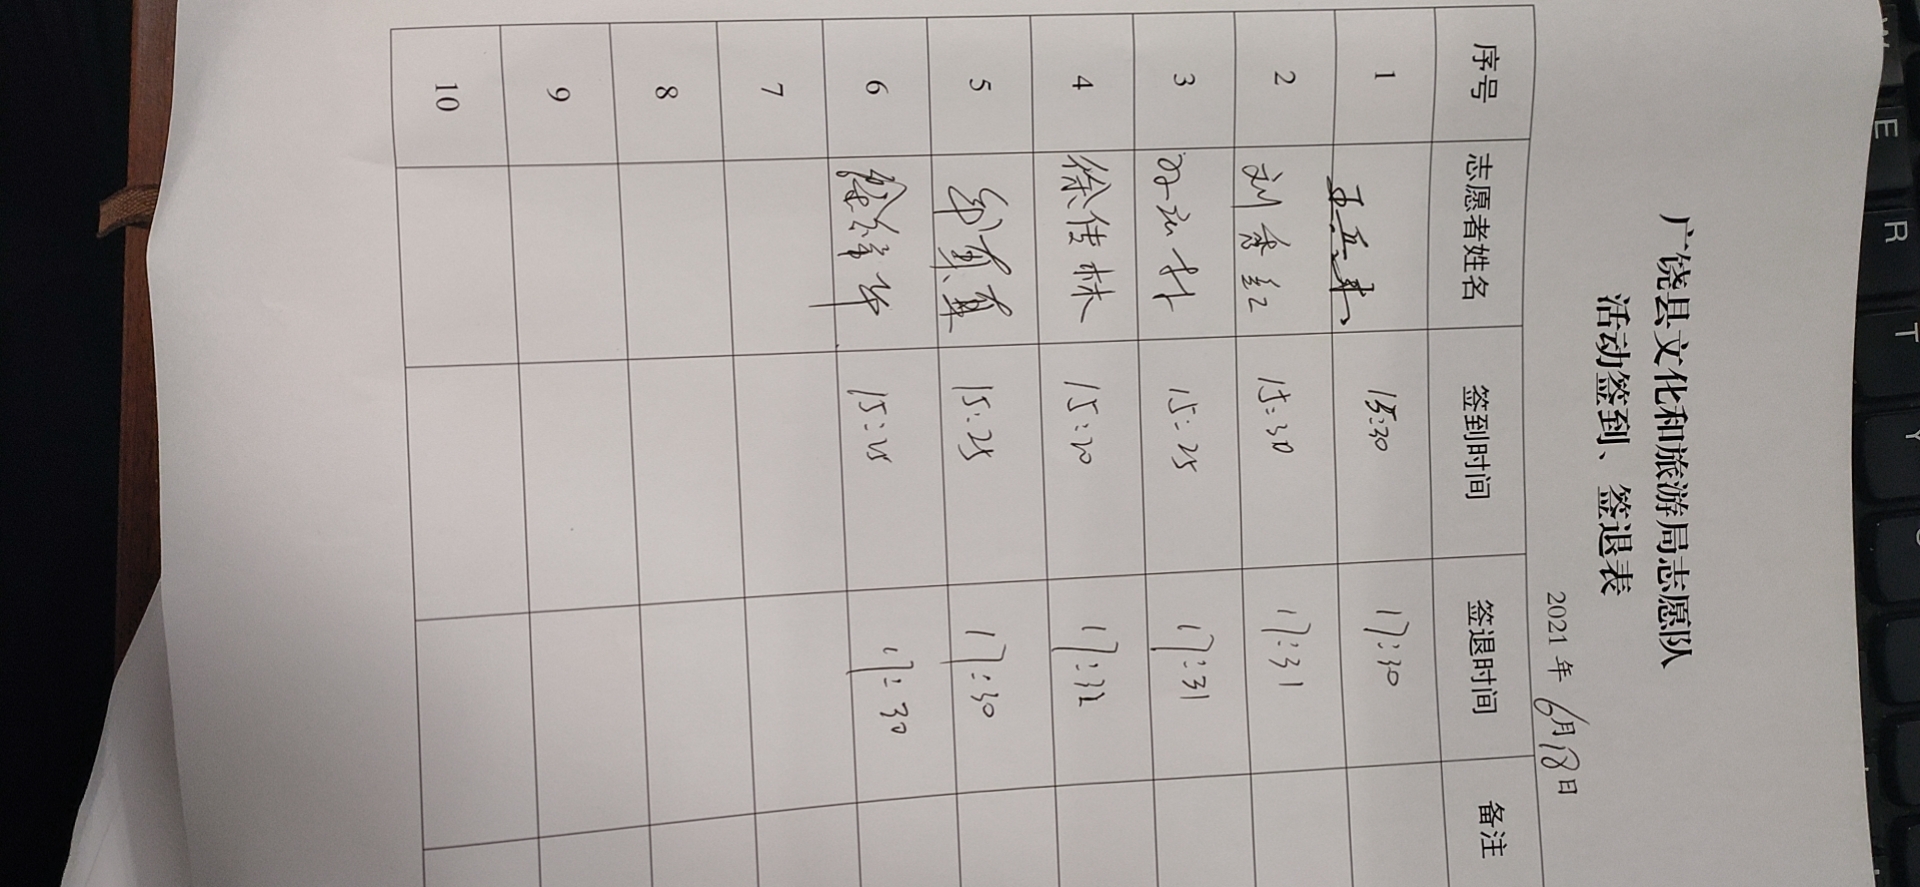 广饶县文化和旅游局志愿队
活动签到、签退表
2021年6月18日
序号 志愿者姓名 签到时间 签退时间 备注
1 15:30 17:30
2 刘秀红 15:30 17:31
3 15:25 17:31
4 徐佳林 15:20 17:32
5 15:25 17:30
6 15:25 17:30
7
8
9
10
W
E
R
T
Y